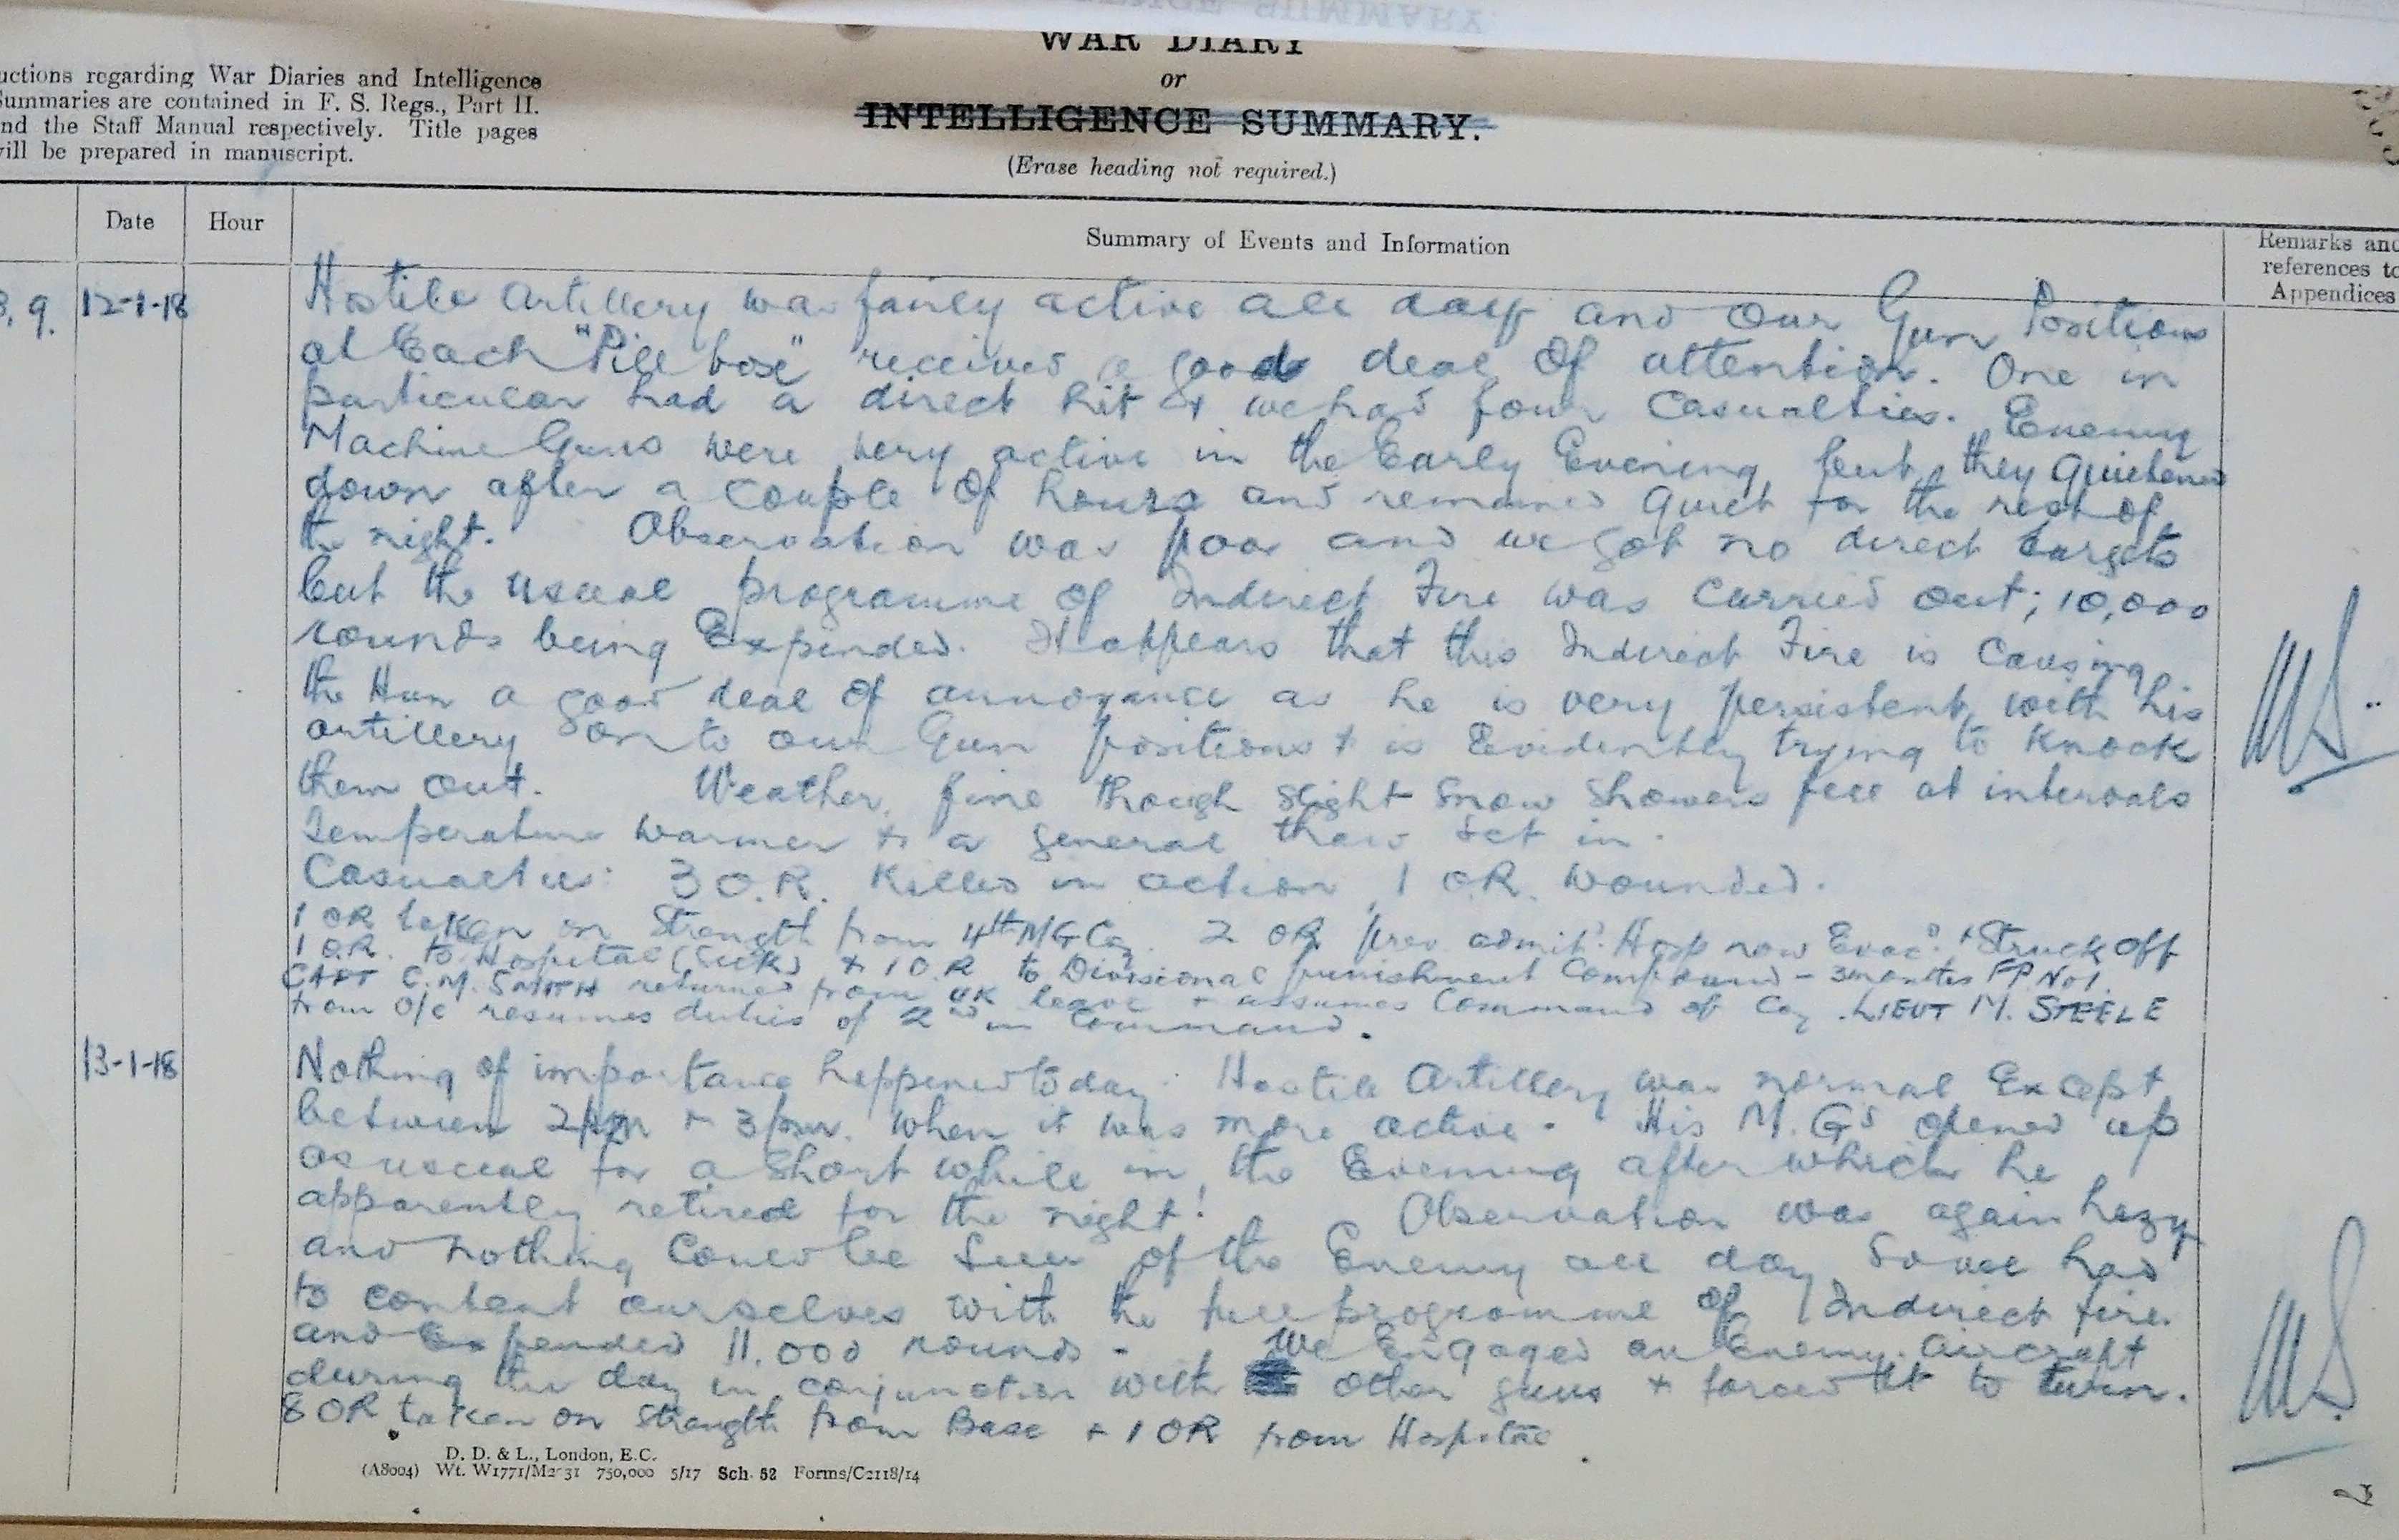 WAR DIARY
or
INTELLIGENCE SUMMARY.
(Erase heading not required.)
uctions regarding War Diaries and Intelligence
Summaries are contained in F. S. Regs., Part II.
nd the Staff Manual respectively. Title pages
will be prepared in manuscript.
Date
Hour
Summary of Events and Information
Remarks and
references to
Appendices
9.
12-1-18
Hostile Artillery was fairly active all day and our Gun Positions
at Each "Pill box" received a good deal of attention. One in
particular had a direct hit & we had four Casualties. Enemy
Machine Guns were very active in the Early Evening but they quietened
down after a couple of hours and remained quiet for the rest of
the night. Observation was poor and we got no direct targets
but the usual programme of Indirect Fire was carried out; 10,000
rounds being Expended. It appears that this Indirect Fire is causing
the Hun a good deal of annoyance as he is very persistent with his
artillery on to our Gun positions & is Evidently trying to knock
them out. Weather, fine though slight snow showers fell at intervals
Temperature warmer & a general thaw set in.
Casualties: 3 O.R. Killed in action, 1 O.R. Wounded.
1 OR taken on Strength from 4th MG Coy. 2 OR prev admitd. Hosp now Evacd. & Struck off
1 O.R. to Hospital (Sick) & 1 O.R to Divisional punishment Compound - 3 months FP No1.
CAPT C.M. SMITH returned from UK leave & assumes Command of Coy. LIEUT M. STEELE
from O/C resumes duties of 2nd in Command.
13-1-18
Nothing of importance happened today. Hostile Artillery was normal Except
between 2pm & 3pm. when it was more active. His M.Gs opened up
as usual for a short while in the Evening after which he
apparently retired for the night! Observation was again hazy
and nothing could be seen of the Enemy all day so we had
to content ourselves with the full programme of Indirect fire
and Expended 11.000 rounds. We Engaged an Enemy aircraft
during the day in conjunction with other guns & forced it to turn.
8 OR taken on strength from Base & 1 OR from Hospital.
MS
MS
D. D. & L., London, E.C.
(A8004) Wt. W1771/M2031 750,000 5/17 Sch. 52 Forms/C2118/14